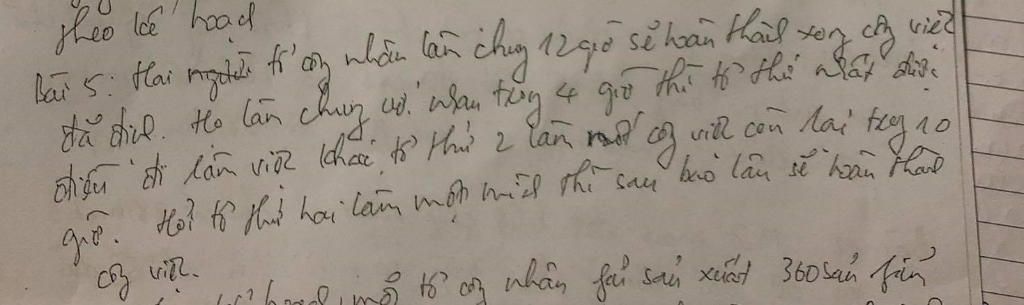 theo kế hoạch
Bài 5: Hai người tổ công nhân làm chung 12 giờ sẽ hoàn thành xong công việc
đã định. Họ làm chung với nhau trong 4 giờ thì tổ thứ nhất được
điều đi làm việc khác, tổ thứ 2 làm nốt công việc còn lại trong 10
giờ. Hỏi tổ thứ hai làm một mình thì sau bao lâu sẽ hoàn thành
công việc.
hoạch, mỗi tổ công nhân phải sản xuất 360 sản phẩm